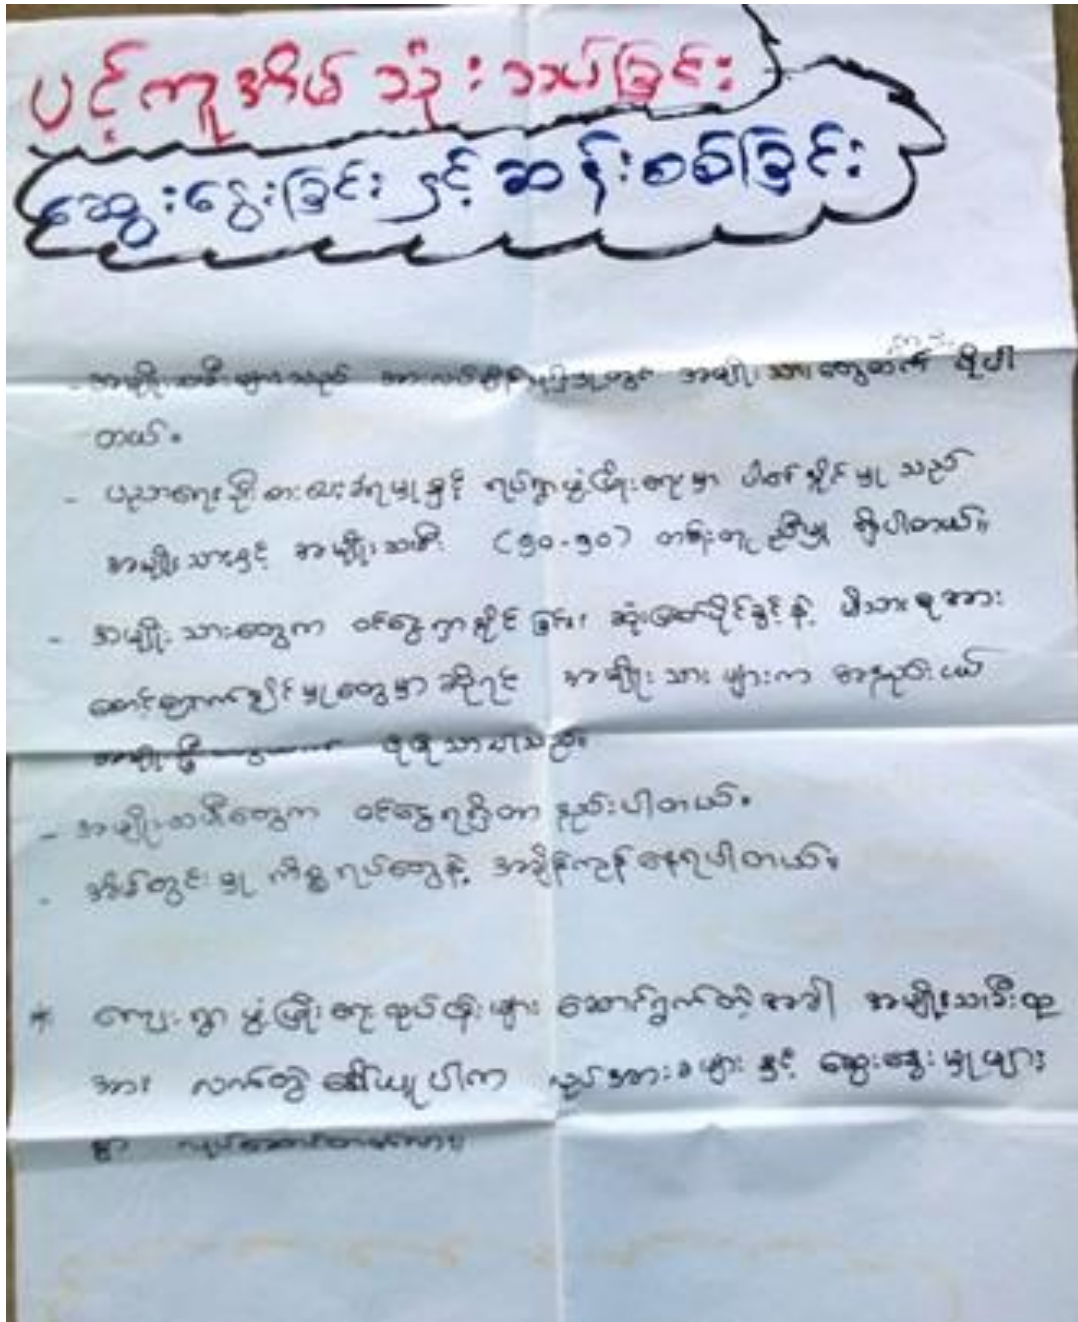 ပင့်ကူအိမ် သုံးသပ်ခြင်း
ဆွေးနွေးခြင်းနှင့် ဆန်းစစ်ခြင်း
- အမျိုးသမီးများသည် အမျိုးသားတွေထက် ပိုပါ
တယ်။
- ပညာရေး နှင့် ရပ်ရွာဖွံ့ဖြိုးရေးမှာ ပါဝင်နိုင်မှု သည်
အမျိုးသားနှင့် အမျိုးသမီး (၅၀-၅၀) တန်းတူညီမျှမှု ရှိပါတယ်။
- အမျိုးသားတွေက ဝင်ငွေရှာနိုင်ခြင်း၊ ဆုံးဖြတ်ပိုင်ခွင့်နဲ့ မိသားစုအား
စောင့်ရှောက်နိုင်မှုတွေမှာဆိုရင် အမျိုးသားများက အနည်းငယ်
ပိုမိုသာပါသည်။
- အမျိုးသမီးတွေက ဝင်ငွေရရှိတာ နည်းပါတယ်။
- အိမ်တွင်းမှု ကိစ္စရပ်တွေနဲ့ အချိန်ကုန်နေရပါတယ်။
* ကျေးရွာဖွံ့ဖြိုးရေးလုပ်ငန်းများ ဆောင်ရွက်တဲ့အခါ အမျိုးသမီးထု
အား လက်တွဲခေါ်ယူပါက လုပ်အားခများ နှင့် ဆွေးနွေးမှုများ